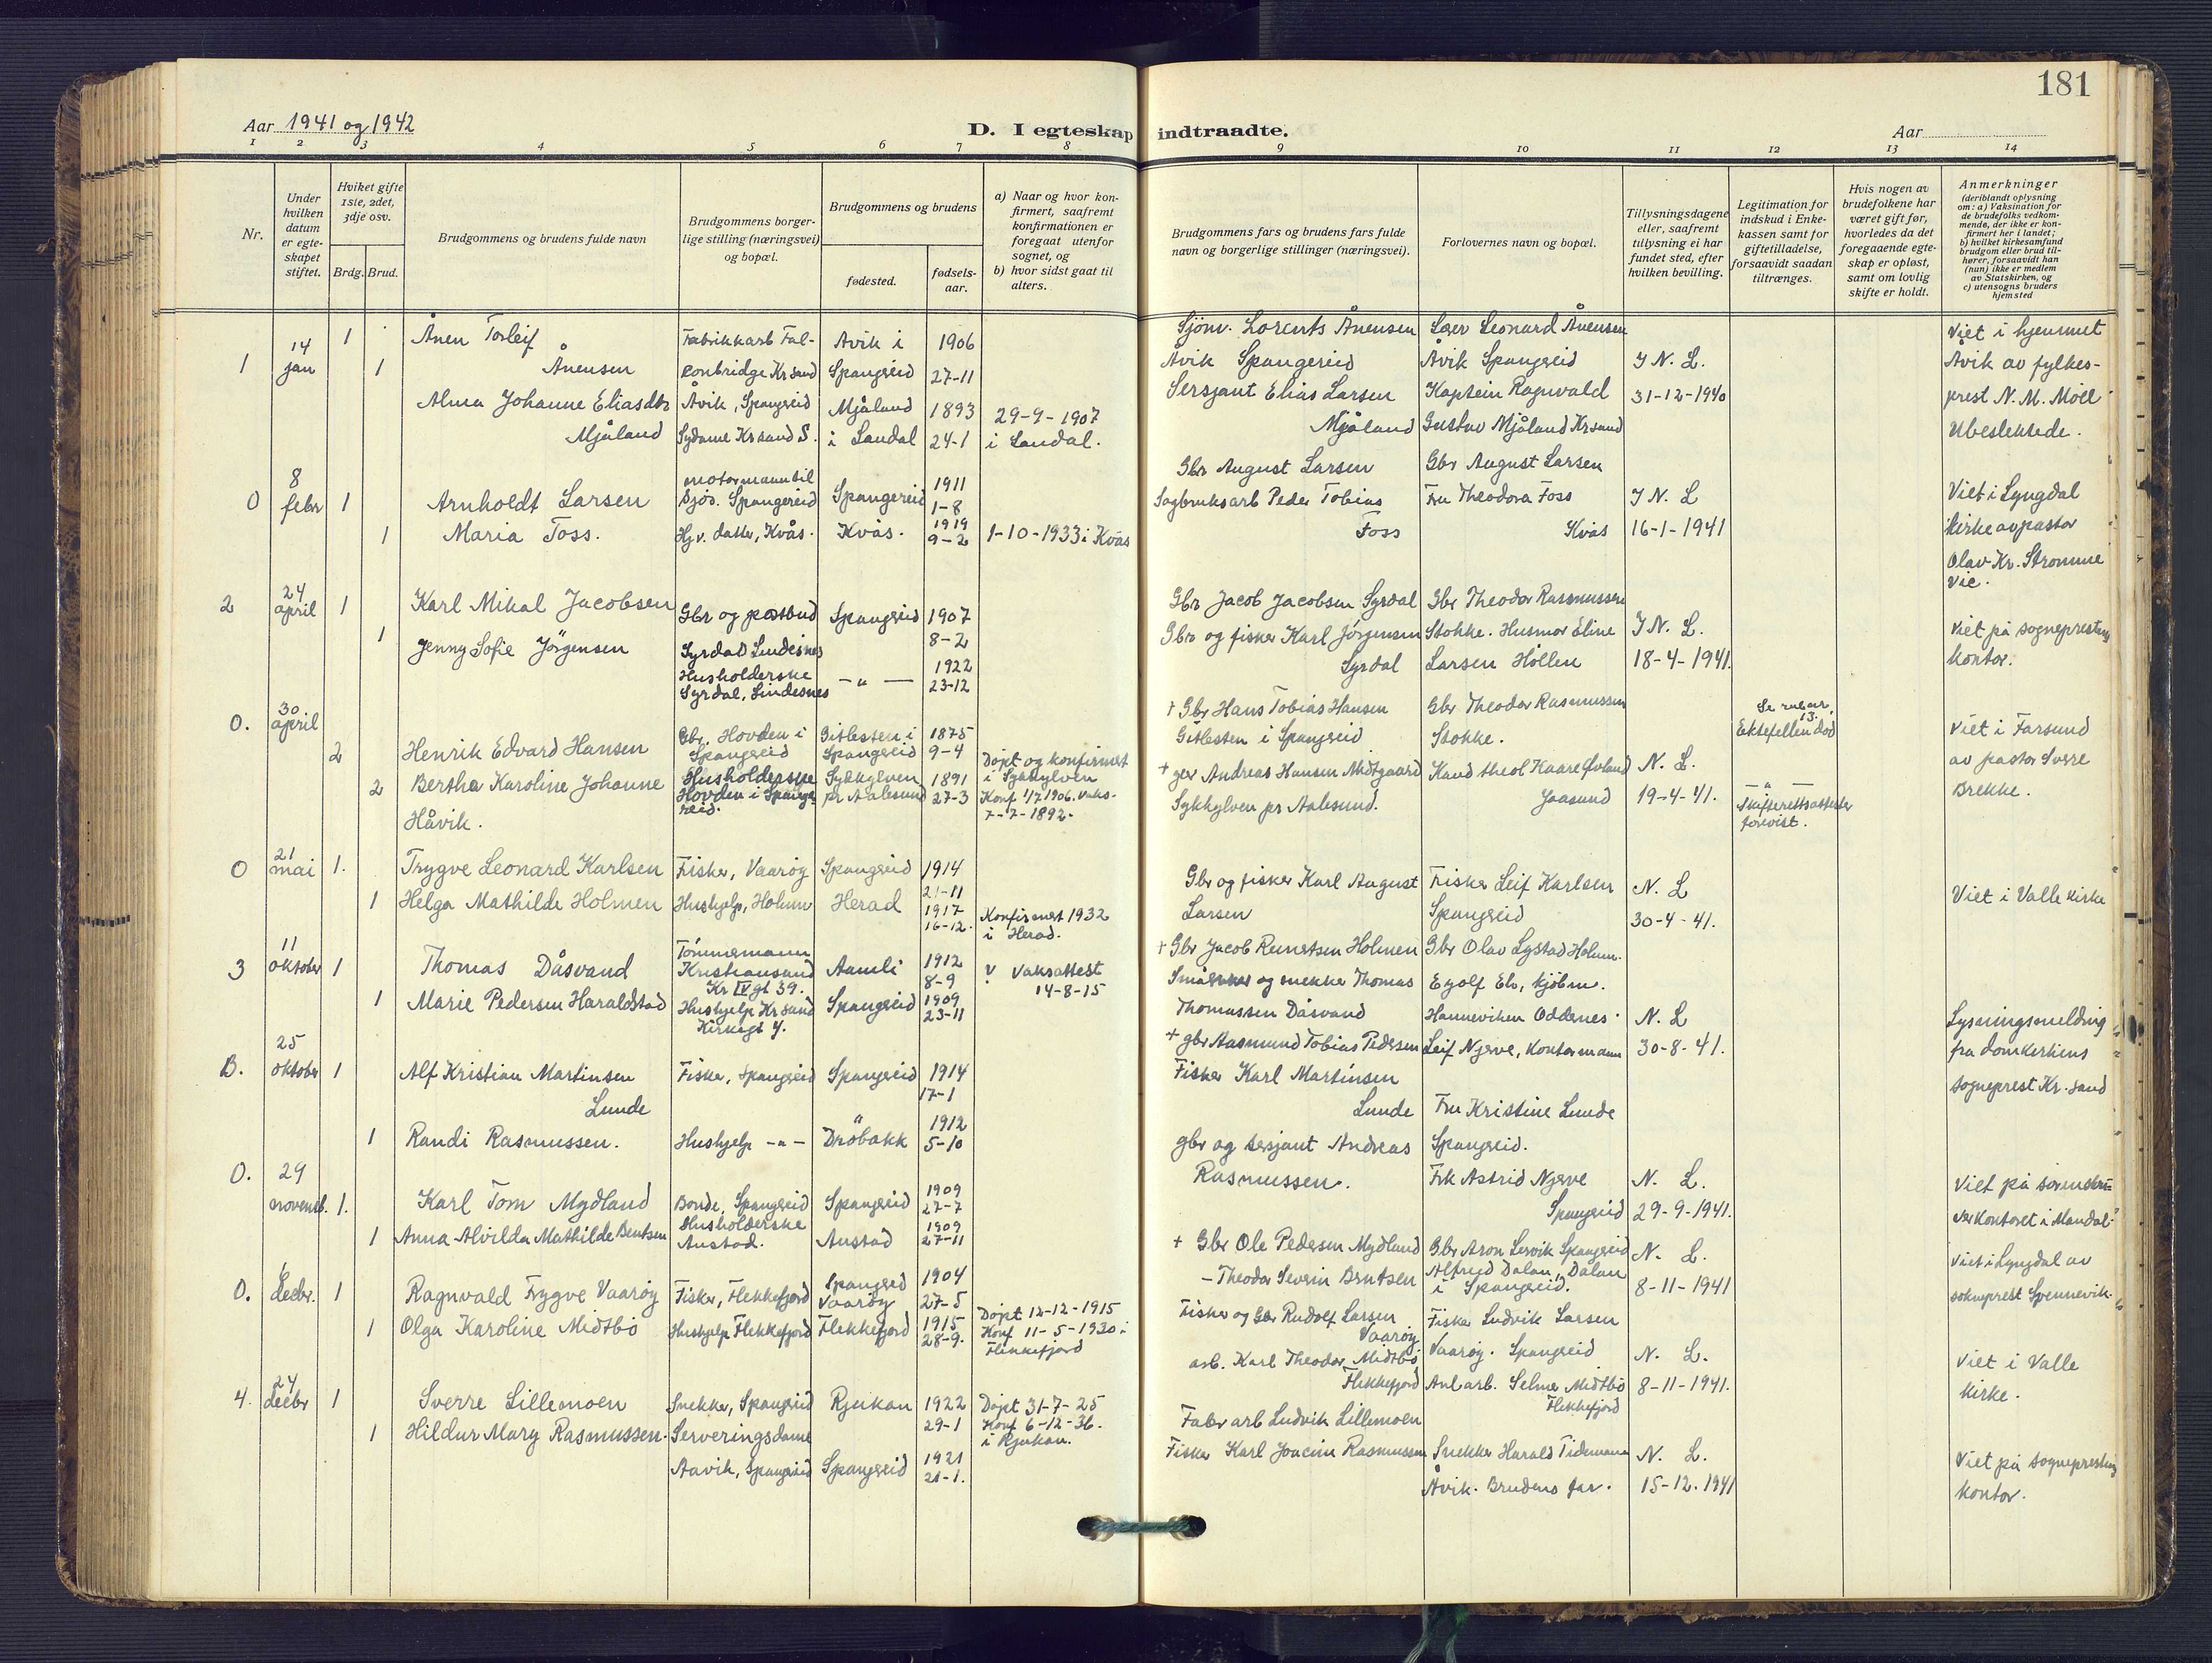 181
Aar 1941 og 1942
D. I egteskap indtraadte.
Aar
1 2 3 4 5 6 7 8 9 10 11 12 13 14
Nr.
Under hvilken datum er egteskapet stiftet.
Hviket gifte 1ste, 2det, 3dje osv.
Brdg. Brud.
Brudgommens og brudens fulde navn
Brudgommens borgerlige stilling (næringsvei) og bopæl.
Brudgommens og brudens
fødested.
fødselsaar.
a) Naar og hvor konfirmert, saafremt konfirmationen er foregaat utenfor sognet, og
b) hvor sidst gaat til alters.
Brudgommens fars og brudens fars fulde navn og borgerlige stillinger (næringsvei).
Forlovernes navn og bopæl.
Tillysningsdagene eller, saafremt tillysning ei har fundet sted, efter hvilken bevilling.
Legitimation for indskud i Enkekassen samt for giftetilladelse, forsaavidt saadan tiltrænges.
Hvis nogen av brudefolkene har været gift før, hvorledes da det foregaaende egteskap er opløst, samt om lovlig skifte er holdt.
Anmerkninger
(deriblandt oplysning om: a) Vaksination for de brudefolks vedkommende, der ikke er konfirmert her i landet; b) hvilket kirkesamfund brudgom eller brud tilhører, forsaavidt han (hun) ikke er medlem av Statskirken, og c) utensogns bruders hjemsted
1
14 jan
1
Ånen Torleif
Ånensen
Fabrikkarb Falconbridge Kr sand
Avik i Spangereid
1906
27-11
1
Alma Johanne Eliasdtr
Mjåland
Åvik, Spangereid
Sydame Kr sand S.
Mjåland
i Laudal
1893
24-1
29-9-1907
i Laudal.
Sjöm. Lorents Ånensen
Åvik Spangereid
Sersjant Elias Larsen
Mjåland
Lær Leonard Ånensen
Åvik Spangreid
Kaptein Ragnvald
Gustav Mjåland Kr sand
I N. L.
31-12-1940
Viet i hjemmet
Avik av fylkesprest
N. M. Möll
Ubeslektede.
0
8 febr
1
Arnholdt Larsen
motormann bil
Sjös. Spangereid
Spangereid
1911
1-8
1
Maria Foss.
Hj v. datter, Kvås.
Kvås.
1919
9-2
1-10-1933 i Kvås
Gbr August Larsen
Sagbruksarb Peder Tobias
Foss
Gbr August Larsen
Fru Theodora Foss
Kvås
I N. L
16-1-1941
Viet i Lyngdal
kirke av pastor
Olav Kr. Stromme
Vie.
2
24 april
1
Karl Mikal Jacobsen
Gbr og postbud
Syrdal Lindesnes
Spangreid
1907
8-2
1
Jenny Sofie Jörgensen
Husholderske
Syrdal, Lindesnes
— " —
1922
23-12
Gbr Jacob Jacobsen Syrdal
Gbr og fisker Karl Jörgensen
Syrdal
Gbr Theodor Rasmussen
Stokke. Husmor Eline
Larsen Höllen
I N. L.
18-4-1941.
Viet på sogneprestens
kontor.
0.
30 april
2
Henrik Edvard Hansen
Gbr. Hovden i
Spangreid
Gitlesten i
Spangreid
1875
9-4
2
Bertha Karoline Johanne
Håvik.
Husholderske
Hovden i Spangereid.
Sykkylven
pr Aalesund
1891
27-3
Döpt og konfirmert
i Sykkylven
Konf 1/7 1906. Vaks-
7-7-1892.
+ Gbr Hans Tobias Hansen
Gitlesten i Spangreid
+ gbr Andreas Hansen Midtgaard
Sykkylven pr Aalesund.
Gbr Theodor Rasmussen
Stokke.
Kand theol Kaare Foland
N. L.
19-4-41.
Se rubr.
13.
Ektefellen död
— " —
Skifterettsattester
forevist.
Viet i Farsund
av pastor Sverre
Brekke.
0
21 mai
1.
Trygve Leonard Karlsen
Fisker, Vaaröy
Spangreid
1914
21-11
1
Helga Mathilde Holmen
Hushjelp, Holum
Herad
1917
16-12.
Konfirmert 1932
i Herad.
Gbr og fisker Karl August
Larsen
+ Gbr Jacob Reinertsen Holmen
Fisker Leif Karlsen
Spangreid
Gbr Olav Lystad Holum.
N. L
30-4-41.
Viet i Valle kirke
3
11 oktober
1
Thomas Dåsvand
Tömmermann
Kristiansand
Kr IV gt 39.
Aamli
1912
8-9
v Vaksattest
14-8-15
1
Marie Pedersen Haraldstad
Hushjelp Kr sand
Kirkegt 4.
Spangreid
1909
23-11
Småbruker og snekker Thomas
Thomassen Dåsvand
+ gbr Aasmund Tobias Pedersen
Egolf Eb, kjöbm.
Hanneviken Oddenes.
Leif Njerve, Kontormann
N. L
30-8-41.
Lysningsmelding
fra domkirkens
sogneprest Kr. sand
B.
25 oktober
1
Alf Kristian Martinsen
Lunde
Fisker, Spangreid
Spangreid
1914
17-1
1
Randi Rasmussen.
Hushjelp — " —
Dröbakk
1912
5-10
Fisker Karl Martinsen
Lunde
gbr og sersjant Andreas
Rasmussen.
Fru Kristine Lunde
Spangreid.
Frk Astrid Njerve
Spangreid
N. L.
29-9-1941.
Viet på sorenskriverkontoret
i Mandal.
0.
29 novemb.
1.
Karl Tom Mydland
Bonde, Spangreid
Spangreid
1909
27-7
1
Anna Alvilda Mathilde Bentsen
Husholderske
Austad.
Austad
1909
27-11
+ Gbr Ole Pedersen Mydland
— Theodor Severin Berntsen
Gbr Aron Lervik Spangreid
Alfred Dalan, Dalan
i Spangreid.
N. L.
8-11-1941
Viet i Lyngdal av
sokneprest Spennevik.
0.
6 decbr.
1
Ragnvald Trygve Vaaröy
Fisker, Flekkefjord
Spangreid
Vaaröy
1904
27-5
1
Olga Karoline Midtbö
Hushjelp Flekkefjord
Flekkefjord
1915
28-9.
Döpt 12-12-1915
Konf 11-5-1930 i
Flekkefjord
Fisker og Gbr Rudolf Larsen
Vaaröy
arb. Karl Theodor Midtbö
Flekkefjord
Fisker Ludvik Larsen
Vaaröy. Spangreid
Anl arb. Selmer Midtbö
Flekkefjord
N. L.
8-11-1941.
Viet i Valle
kirke.
4.
24 decbr
1
Sverre Lillemoen
Snekker, Spangreid
Rjukan
1922
29-1
Döpt 31-7-25
Konf 6-12-36.
i Rjukan.
1
Hildur Mary Rasmussen.
Serveringsdame
Aavik, Spangreid
Spangreid
1921
21-1.
Fabr arb Ludvik Lillemoen
Fisker Karl Joacim Rasmussen
Snekker Harald Tidemann
Åvik. Brudens far.
N. L.
15-12.1941
Viet på sogneprestens
kontor.